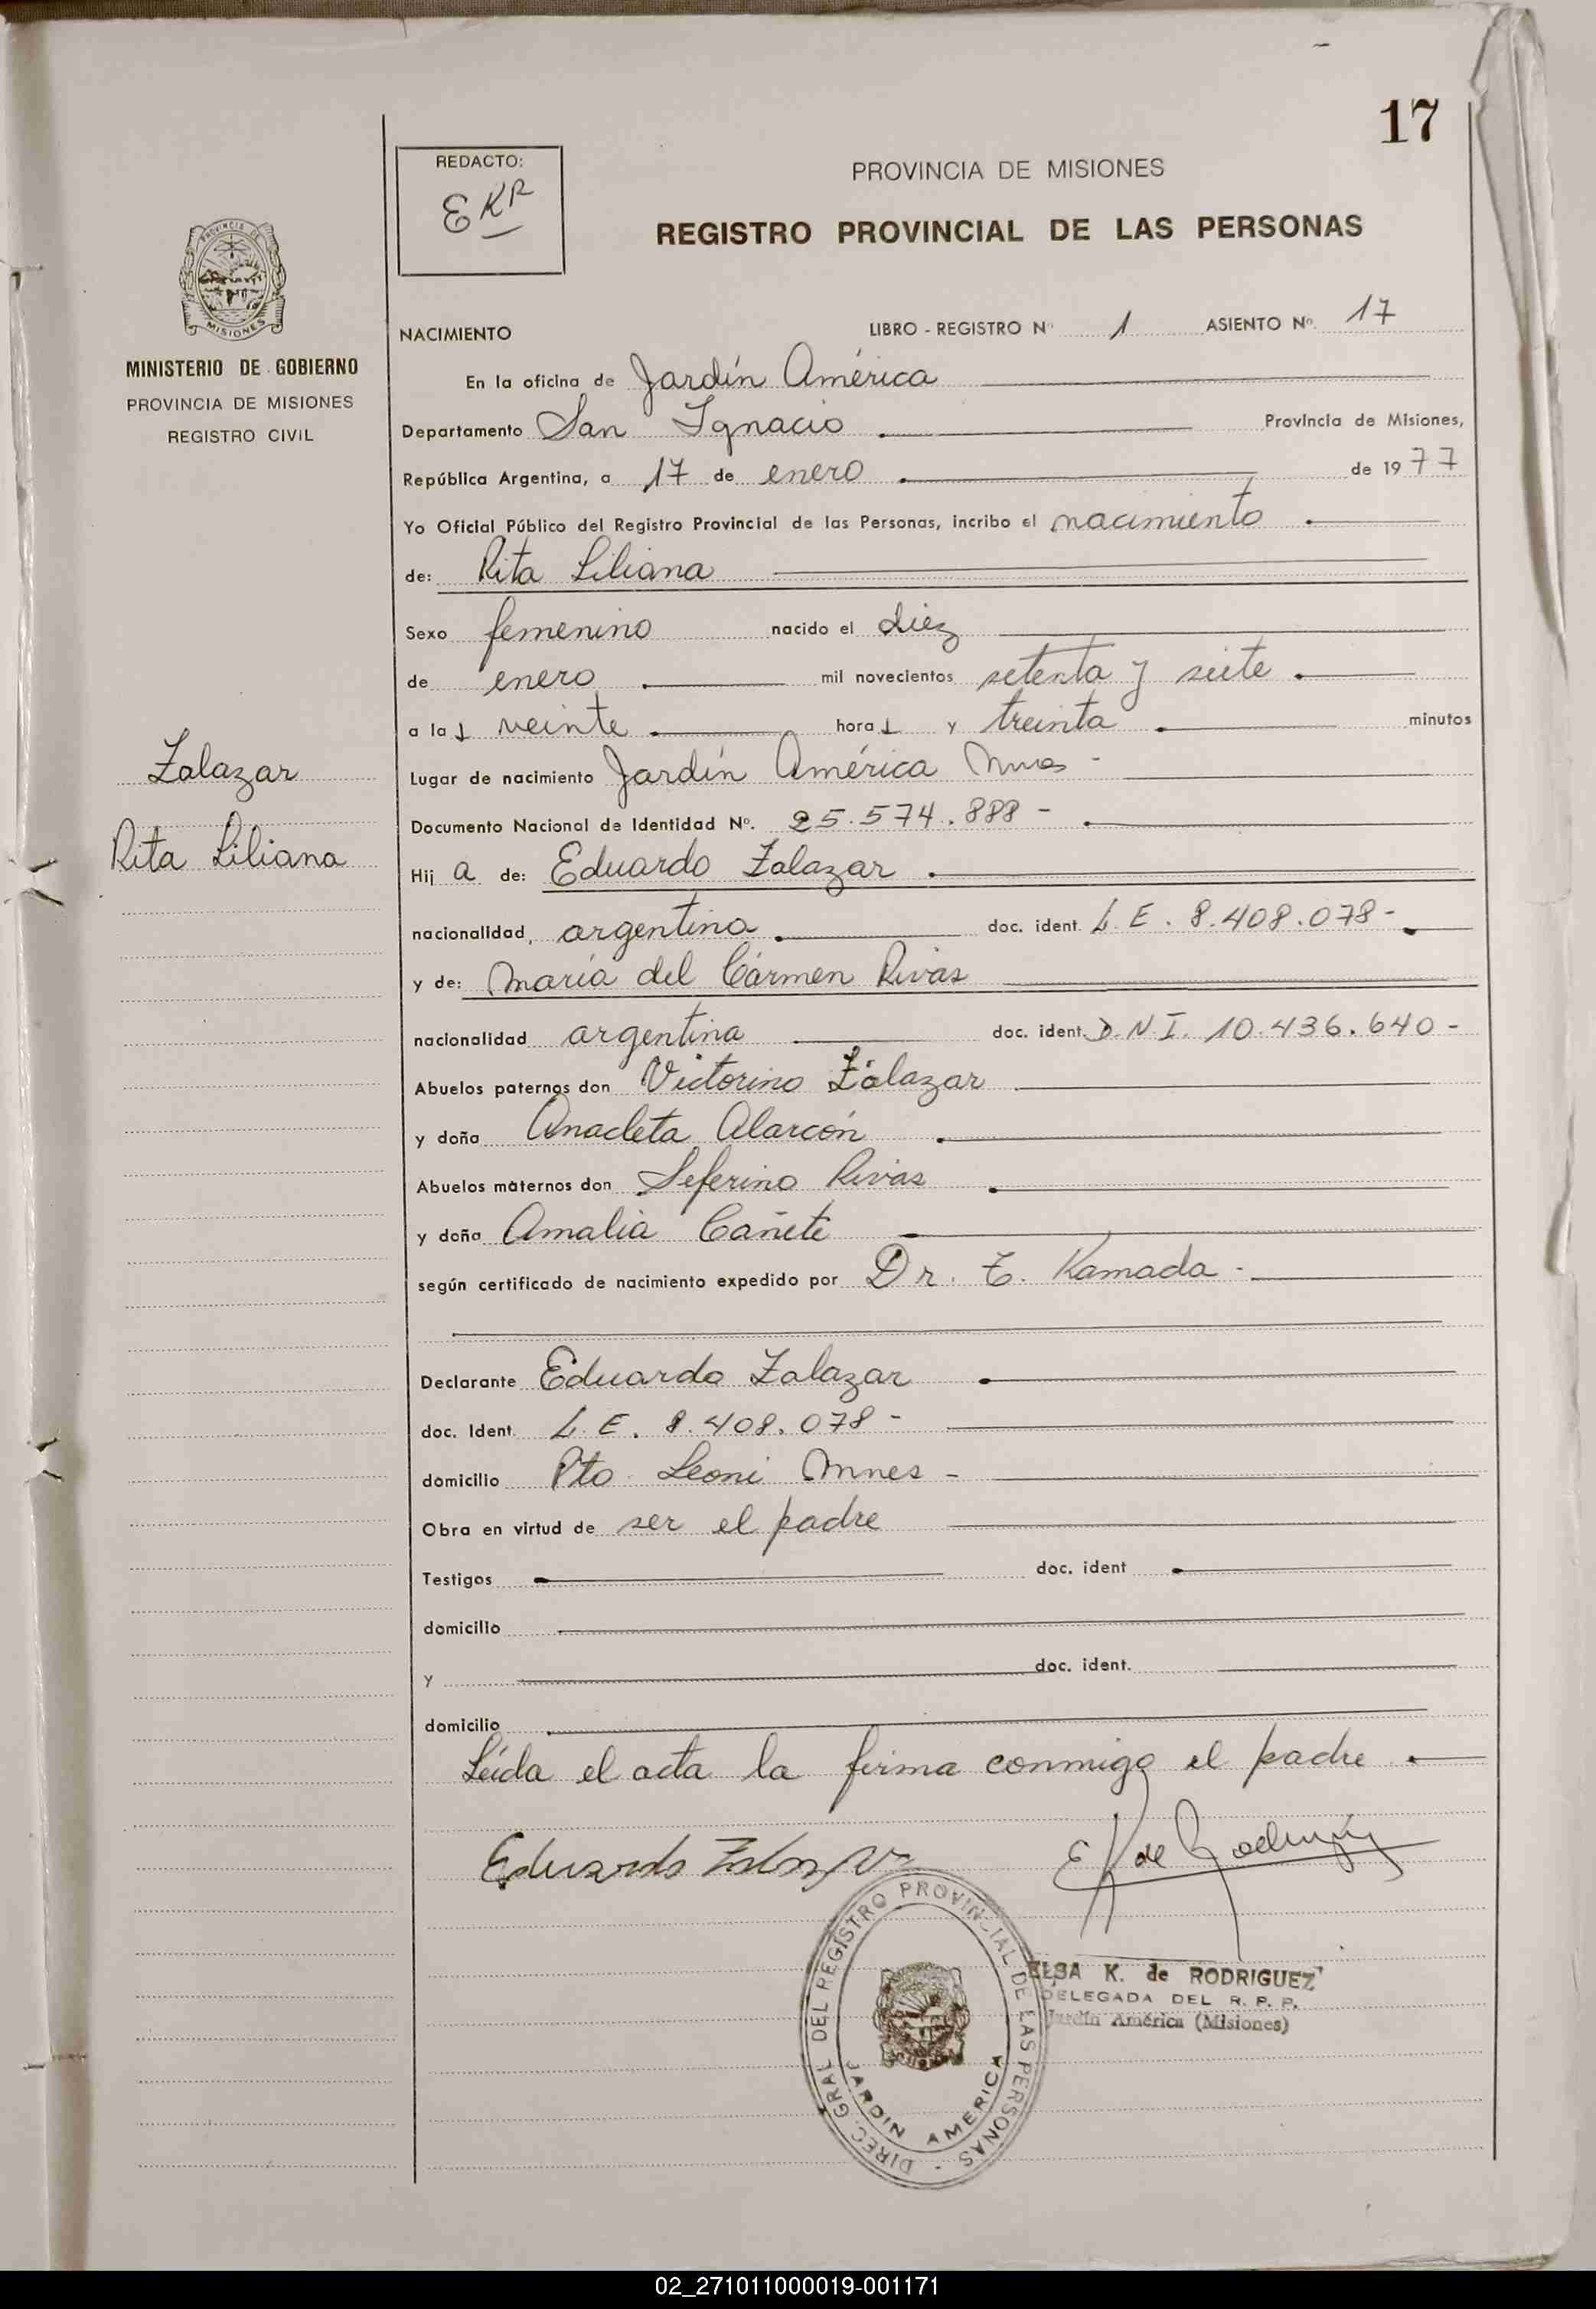 17
REDACTO:
EKR
PROVINCIA DE MISIONES
REGISTRO PROVINCIAL DE LAS PERSONAS
PROVINCIA DE
MISIONES
MINISTERIO DE GOBIERNO
PROVINCIA DE MISIONES
REGISTRO CIVIL
NACIMIENTO LIBRO - REGISTRO Nº 1 ASIENTO Nº 17
En la oficina de Jardín América
Departamento San Ignacio Provincia de Misiones,
República Argentina, a 17 de enero de 1977
Yo Oficial Público del Registro Provincial de las Personas, incribo el nacimiento
de: Rita Liliana
Sexo femenino nacido el diez
de enero mil novecientos setenta y siete
a las veinte horas y treinta minutos
Zalazar
Rita Liliana
Lugar de nacimiento Jardín América Mnes -
Documento Nacional de Identidad Nº. 25.574.888 -
Hij a de: Eduardo Zalazar
nacionalidad, argentina doc. ident. L.E. 8.408.078 -
y de: María del Cármen Rivas
nacionalidad argentina doc. ident. D.N.I. 10.436.640 -
Abuelos paternos don Victorino Zalazar
y doña Anacleta Alarcón
Abuelos maternos don Seferino Rivas
y doña Amalia Cañete
según certificado de nacimiento expedido por Dr. T. Kamada -
Declarante Eduardo Zalazar
doc. Ident. L.E. 8.408.078 -
domicilio Pto. Leoni Mnes -
Obra en virtud de ser el padre
Testigos doc. ident
domicilio
y doc. ident.
domicilio
Leída el acta la firma conmigo el padre
Eduardo Zalazar
E K de Rodriguez
DIREC. GRAL DEL REGISTRO PROVINCIAL DE LAS PERSONAS -
JARDIN AMERICA
ELSA K. de RODRIGUEZ
DELEGADA DEL R. P. P.
Jardín América (Misiones)
02_271011000019-001171